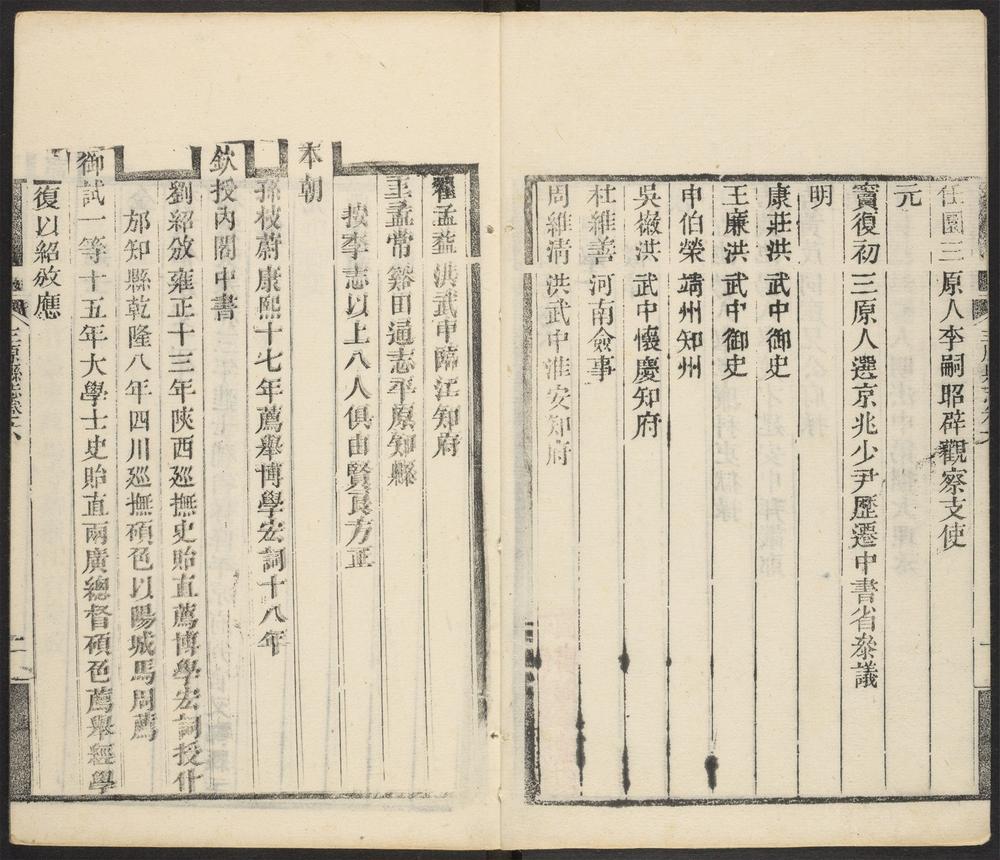 任圜三原人李嗣昭辟觀察支使
元
竇復初三原人選京兆少尹歷遷中書省叅議
明
康莊洪武中御史
王廉洪武中御史
申伯榮靖州知州
吳槸洪武中懷慶知府
杜維善河南僉事
周維清洪武中淮安知府
翟孟益洪武中臨江知府
王孟常簽田通志平原知縣
按李志以上八人俱由賢良方正
本朝
孫枝蔚康熙十七年薦舉博學宏詞十八年
欽授內閣中書
劉紹攽雍正十三年陝西廵撫史貽直薦博學宏詞授什
邡知縣乾隆八年四川廵撫碩色以陽城馬周薦
御試一等十五年大學士史貽直兩廣總督碩色薦舉經學
復以紹攽應
三原縣志卷之八